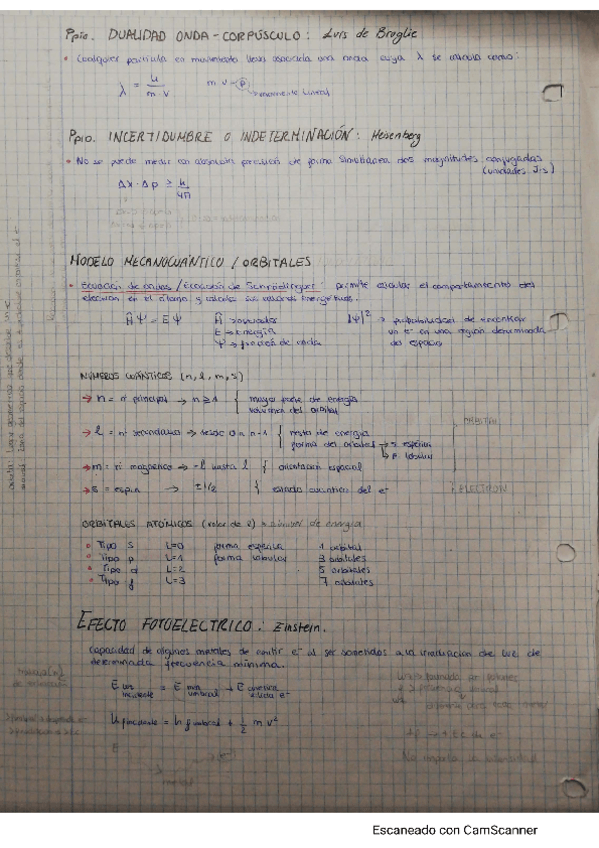 Ppio. DUALIDAD ONDA-CORPÚSCULO: Luis de Broglie
• Cualquier partícula en movimiento lleva asociada una onda cuya λ se calcula como:
λ = h / m·v    m v → p → momento lineal
Ppio. INCERTIDUMBRE o INDETERMINACIÓN: Heisenberg
• No se puede medir con absoluta precisión de forma simultánea dos magnitudes conjugadas
(unidades J·s)
Δx · Δp ≥ h / 4π
MODELO MECANOCUÁNTICO / ORBITALES
• Ecuación de ondas / Ecuación de Schrödinger: permite calcular el comportamiento del
electrón en el átomo y calcula sus valores energéticos.
ĤΨ = EΨ    Ĥ → operador    |Ψ|² → probabilidad de encontrar
E → energía    un e⁻ en una región determinada
Ψ → función de onda    del espacio
NÚMEROS CUÁNTICOS (n, l, m, s)
→ n = nº principal → n ≥ 1 { mayor parte de energía
volumen del orbital
→ l = nº secundario → desde 0 a n-1 { resto de energía
forma del orbital → s esférica
→ p lobular
ORBITAL
→ m = nº magnético → -l hasta l { orientación espacial
→ s = espín → ±1/2 { estado cuántico del e⁻
ELECTRÓN
ORBITALES ATÓMICOS (valor de l) → de energía
• Tipo s    L=0    forma esférica    1 orbital
• Tipo p    L=1    forma lobular    3 orbitales
• Tipo d    L=2    5 orbitales
• Tipo f    L=3    7 orbitales
EFECTO FOTOELECTRICO: Einstein.
Capacidad de algunos metales de emitir e⁻ al ser sometidos a la irradiación de luz de
determinada frecuencia mínima.
E luz incidente = E min umbral + E cinética e⁻
h f incidente = h f umbral + 1/2 m v²
E
No importa la intensidad
Escaneado con CamScanner